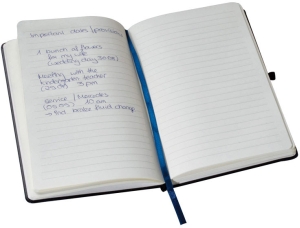 important dates / presents
1 bunch of flowers
for my wife
(wedding day 30.08)
Meeting with the
kindergarten teacher
(25.05) 3 pm
Service / Mercedes
(20.05) 10 am
→ the motor fluid change